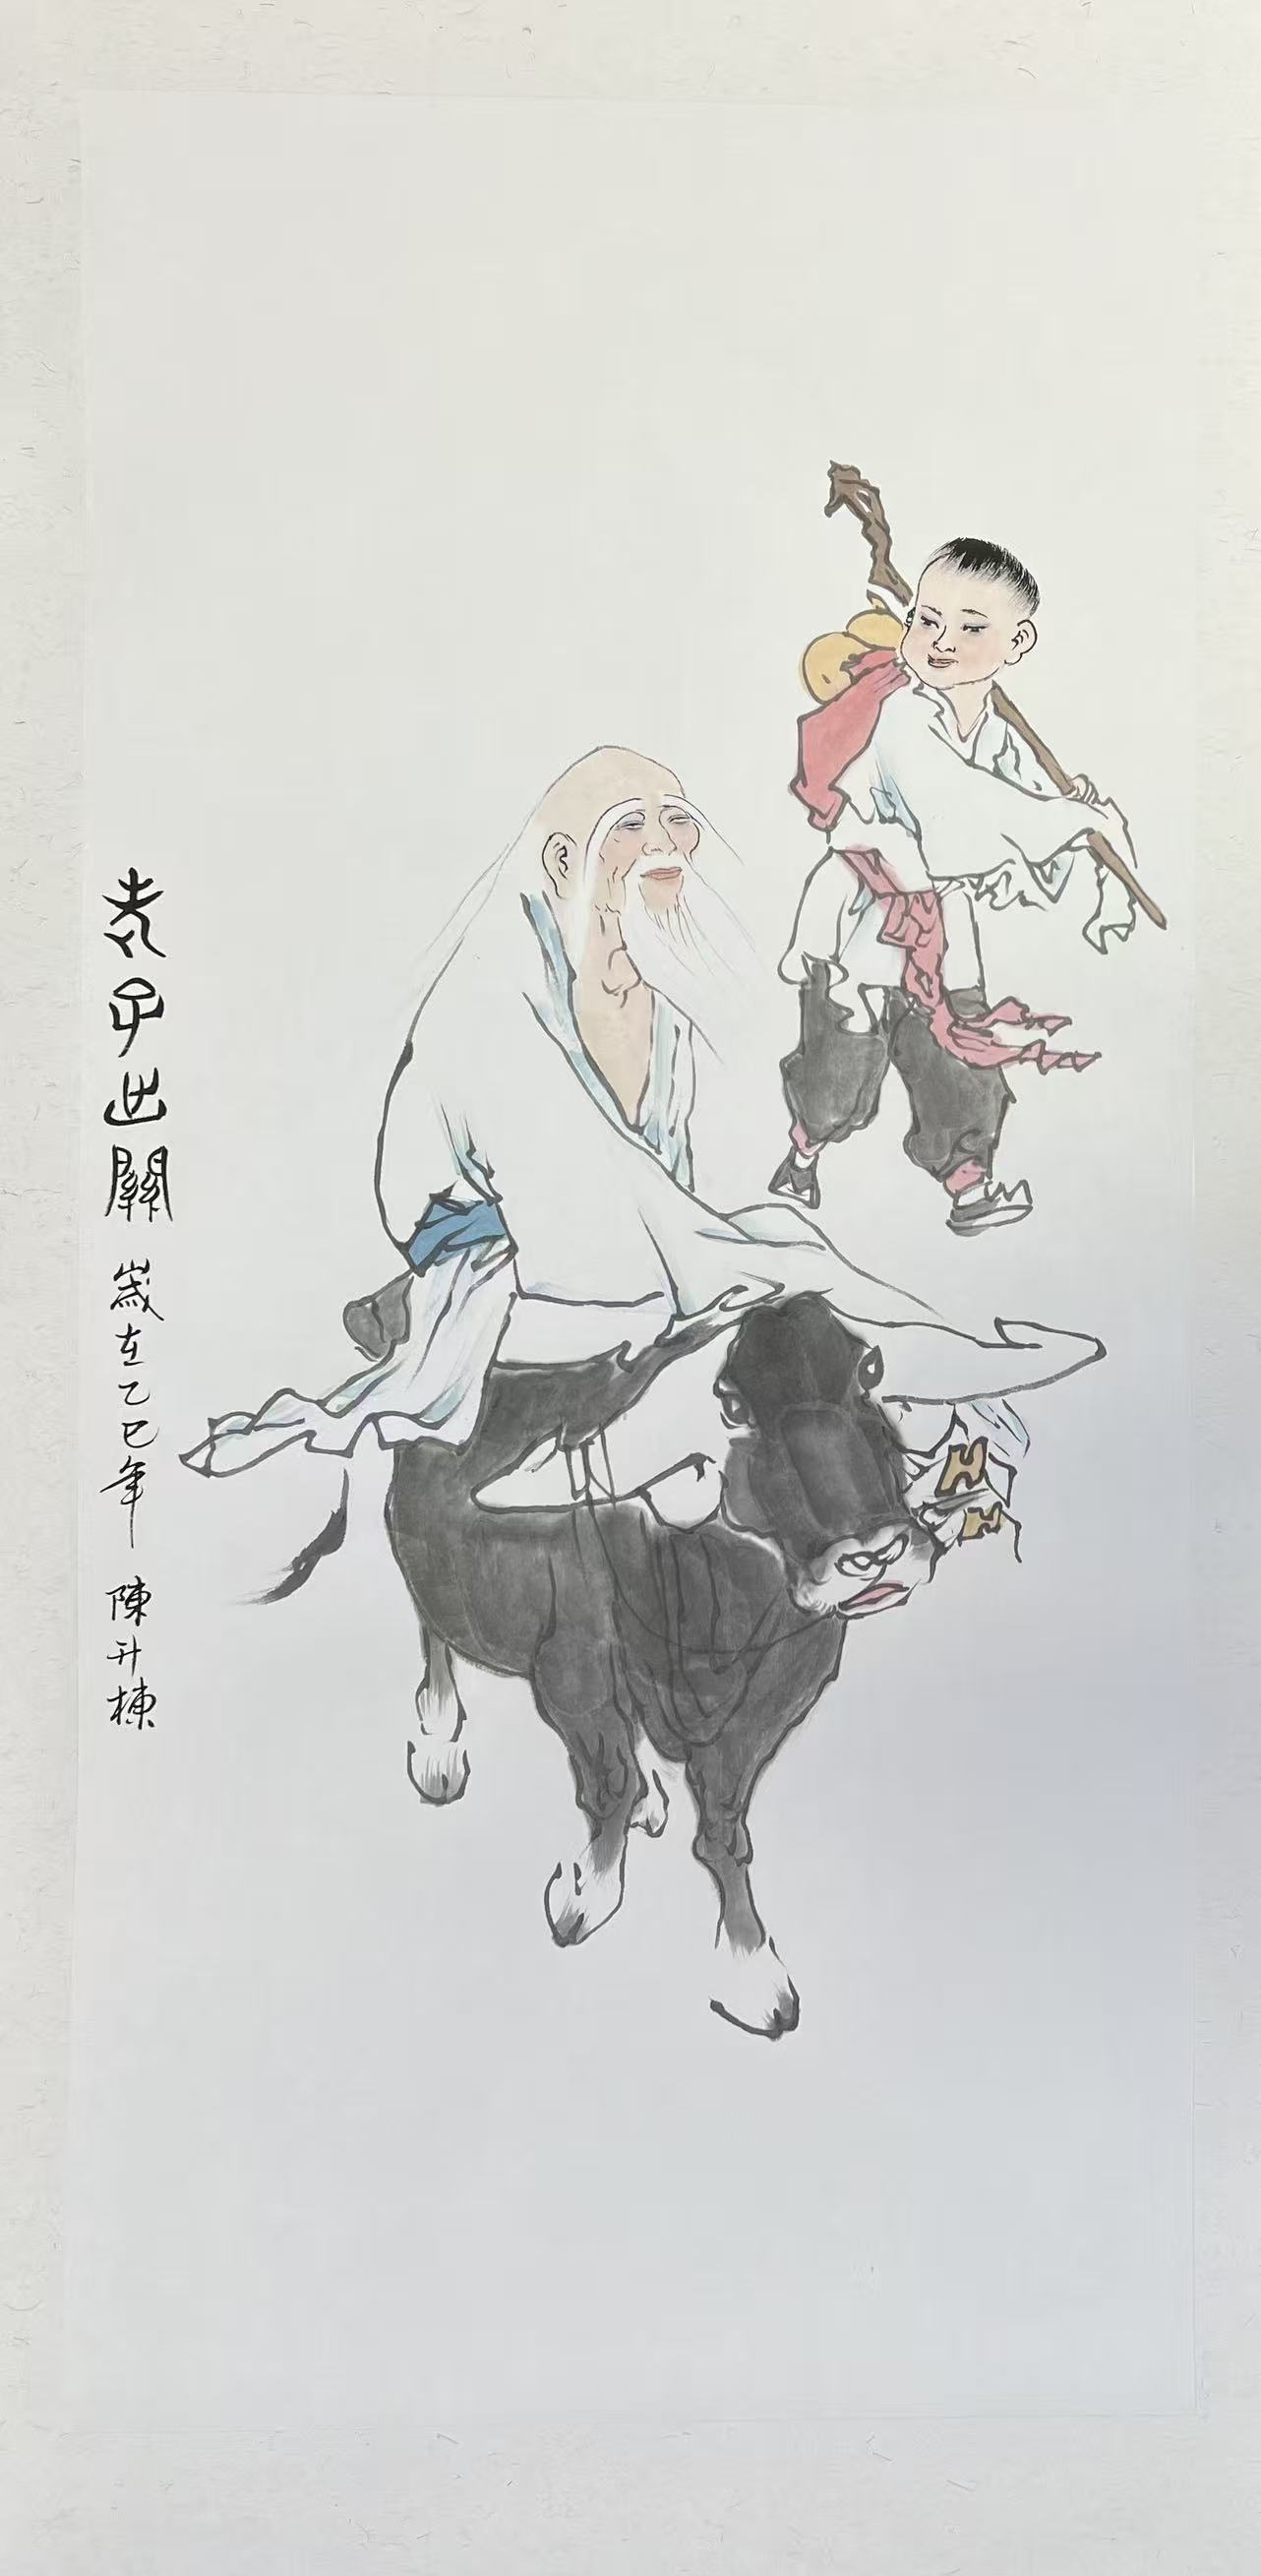 老子出關 歲在乙巳年 陳升棟